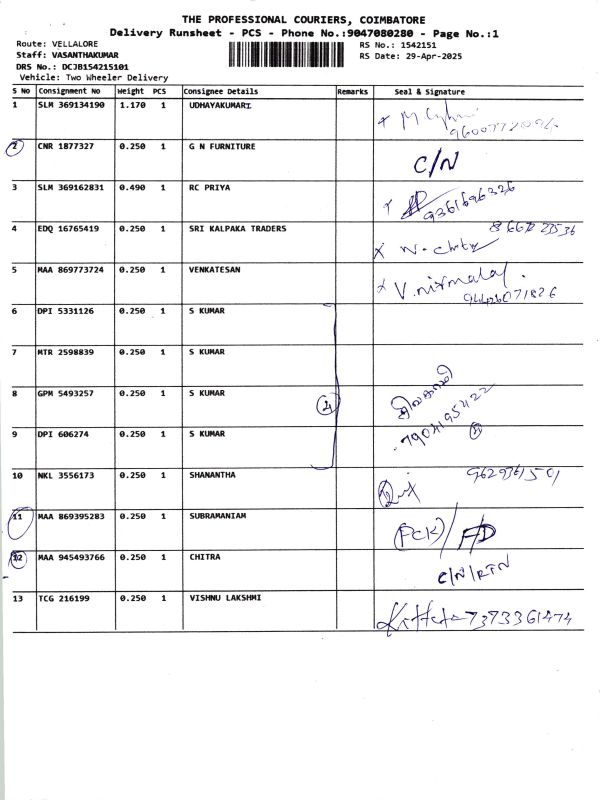 THE PROFESSIONAL COURIERS, COIMBATORE
Delivery Runsheet - PCS - Phone No.:9047080280 - Page No.:1
Route: VELLALORE
RS No.: 1542151
Staff: VASANTHAKUMAR
RS Date: 29-Apr-2025
DRS No.: DCJB154215101
Vehicle: Two Wheeler Delivery
S No Consignment No Weight PCS Consignee Details Remarks Seal & Signature
1 SLM 369134190 1.170 1 UDHAYAKUMARI
2 CNR 1877327 0.250 1 G N FURNITURE C/N
3 SLM 369162831 0.490 1 RC PRIYA 9361696326
4 EDQ 16765419 0.250 1 SRI KALPAKA TRADERS
5 MAA 869773724 0.250 1 VENKATESAN V. nirmala
6 DPI 5331126 0.250 1 S KUMAR
7 MTR 2598839 0.250 1 S KUMAR
8 GPM 5493257 0.250 1 S KUMAR
9 DPI 606274 0.250 1 S KUMAR 7904195422
10 NKL 3556173 0.250 1 SHANANTHA 9629361501
11 MAA 869395283 0.250 1 SUBRAMANIAM
12 MAA 945493766 0.250 1 CHITRA C/N/RTN
13 TCG 216199 0.250 1 VISHNU LAKSHMI 7373361474